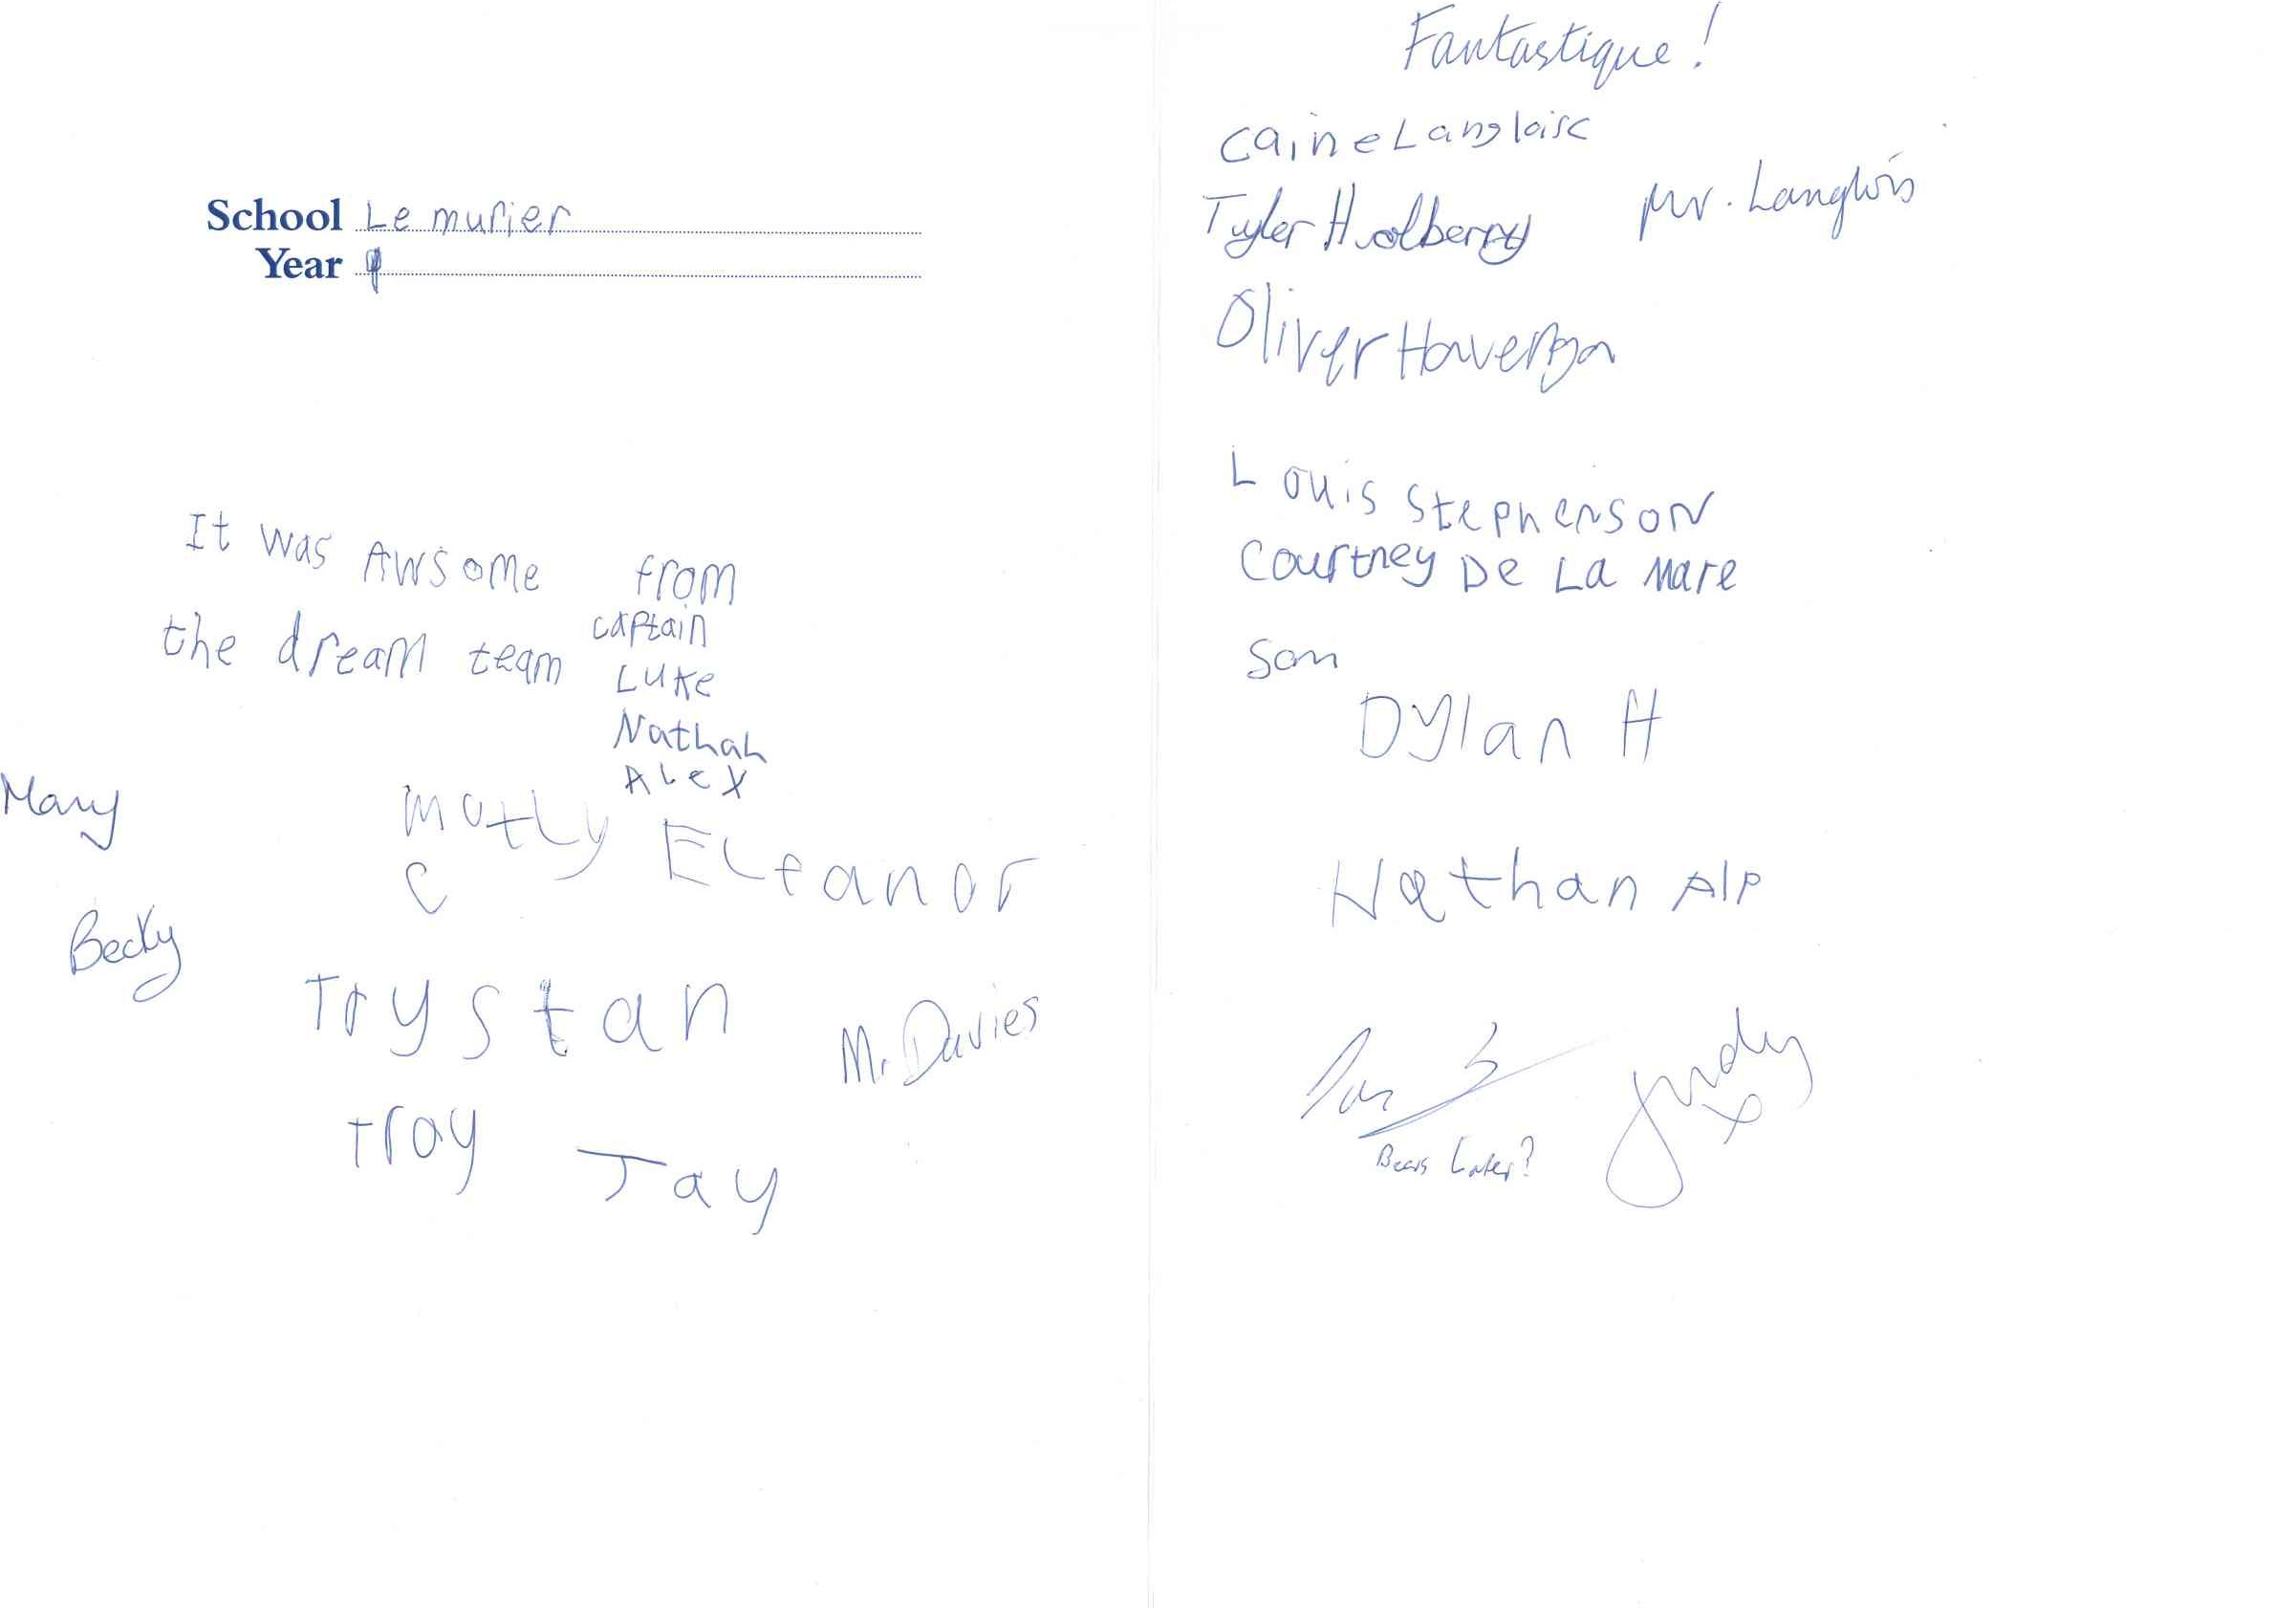 School Le murier
Year 9
It was Awsome from
the dream team captain
Luke
Nathan
Alex
Mary
Matly
C
Eleanor
Becky
Trystan
M. Davies
Troy
Jay
Fantastique!
Caine Langloisc
Tyler
Mr. Langlois
Oliver
Louis Stephenson
Courtney De La Mare
Sam
Dylan H
Nathan Alp
Judy
Beers Later?